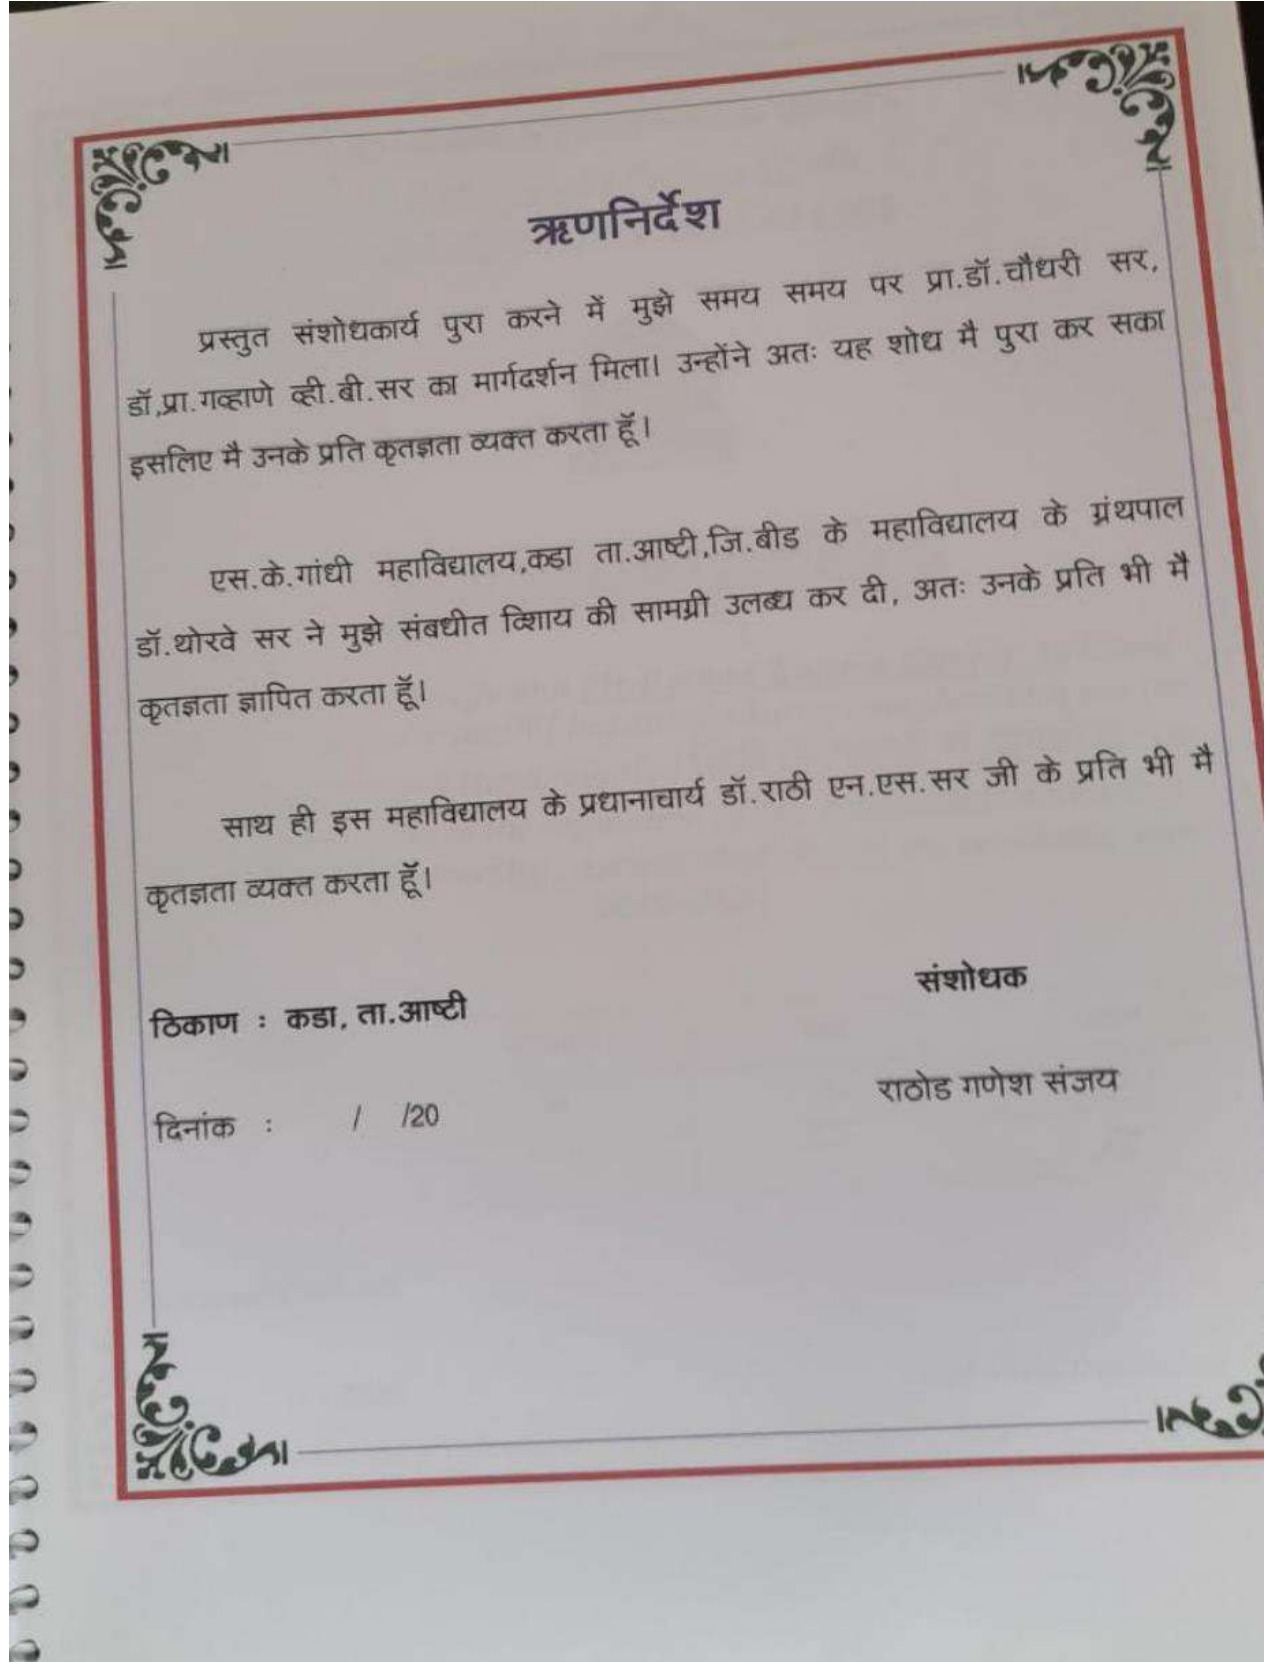 ऋणनिर्देश
प्रस्तुत संशोधकार्य पुरा करने में मुझे समय समय पर प्रा.डॉ.चौधरी सर,
डॉ.प्रा.गव्हाणे व्ही.बी.सर का मार्गदर्शन मिला। उन्होंने अतः यह शोध मै पुरा कर सका
इसलिए मै उनके प्रति कृतज्ञता व्यक्त करता हूॅ।
एस.के.गांधी महाविद्यालय,कडा ता.आष्टी,जि.बीड के महाविद्यालय के ग्रंथपाल
डॉ.थोरवे सर ने मुझे संबधीत विशाय की सामग्री उलब्ध कर दी, अतः उनके प्रति भी मै
कृतज्ञता ज्ञापित करता हूॅ।
साथ ही इस महाविद्यालय के प्रधानाचार्य डॉ.राठी एन.एस.सर जी के प्रति भी मै
कृतज्ञता व्यक्त करता हूॅ।
संशोधक
ठिकाण : कडा, ता.आष्टी
राठोड गणेश संजय
दिनांक : / /20